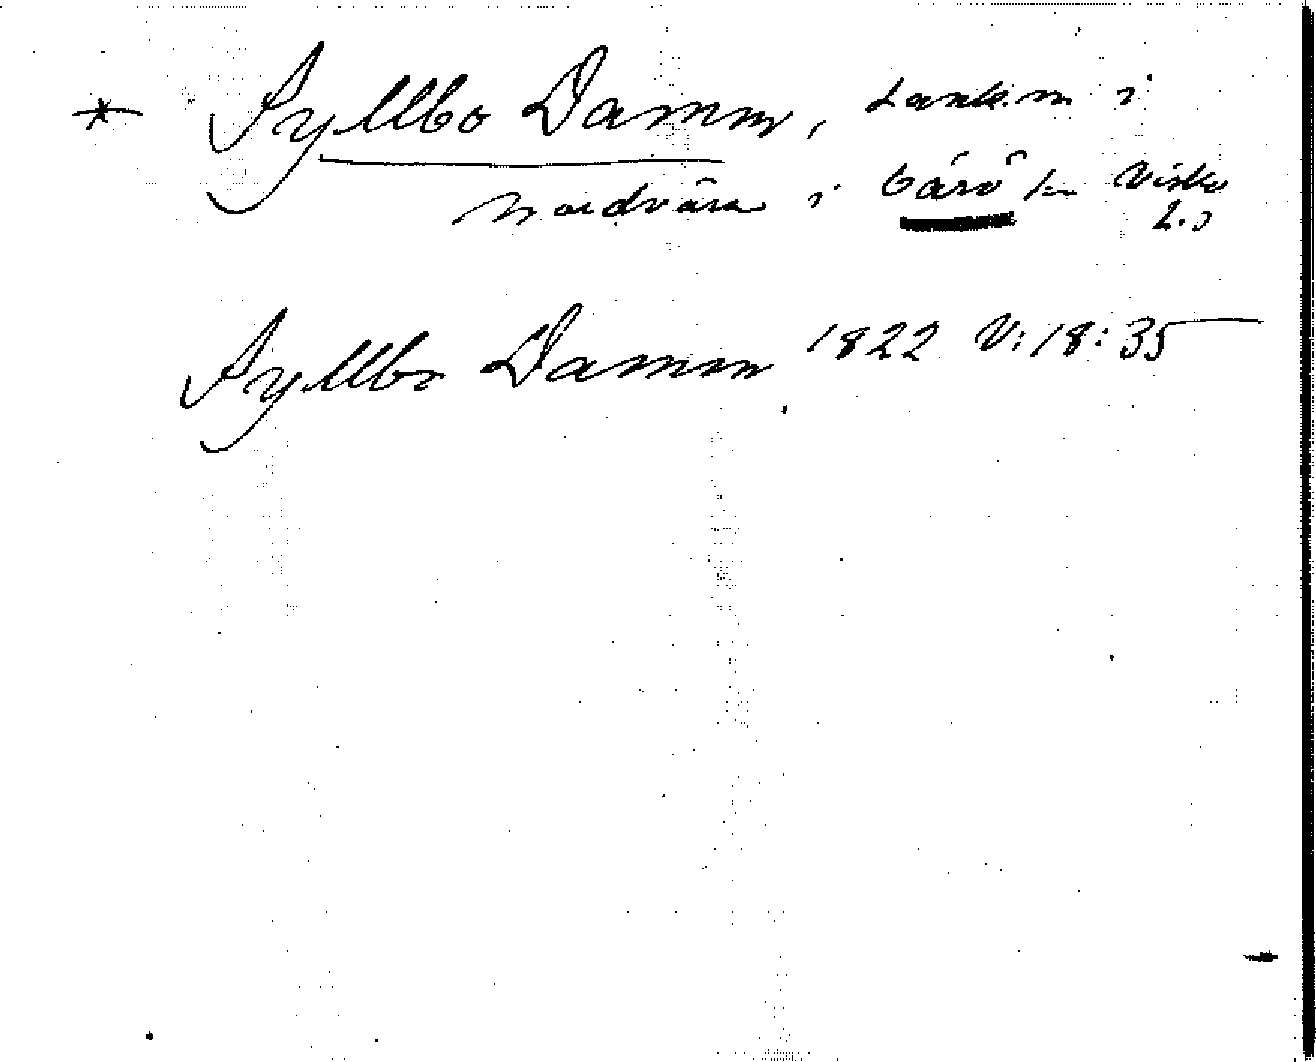 * Syllbo Damm, sankm i
Nordvära i Värö sn Viske
h.d
Syllbo Damm 1822 V:18:35